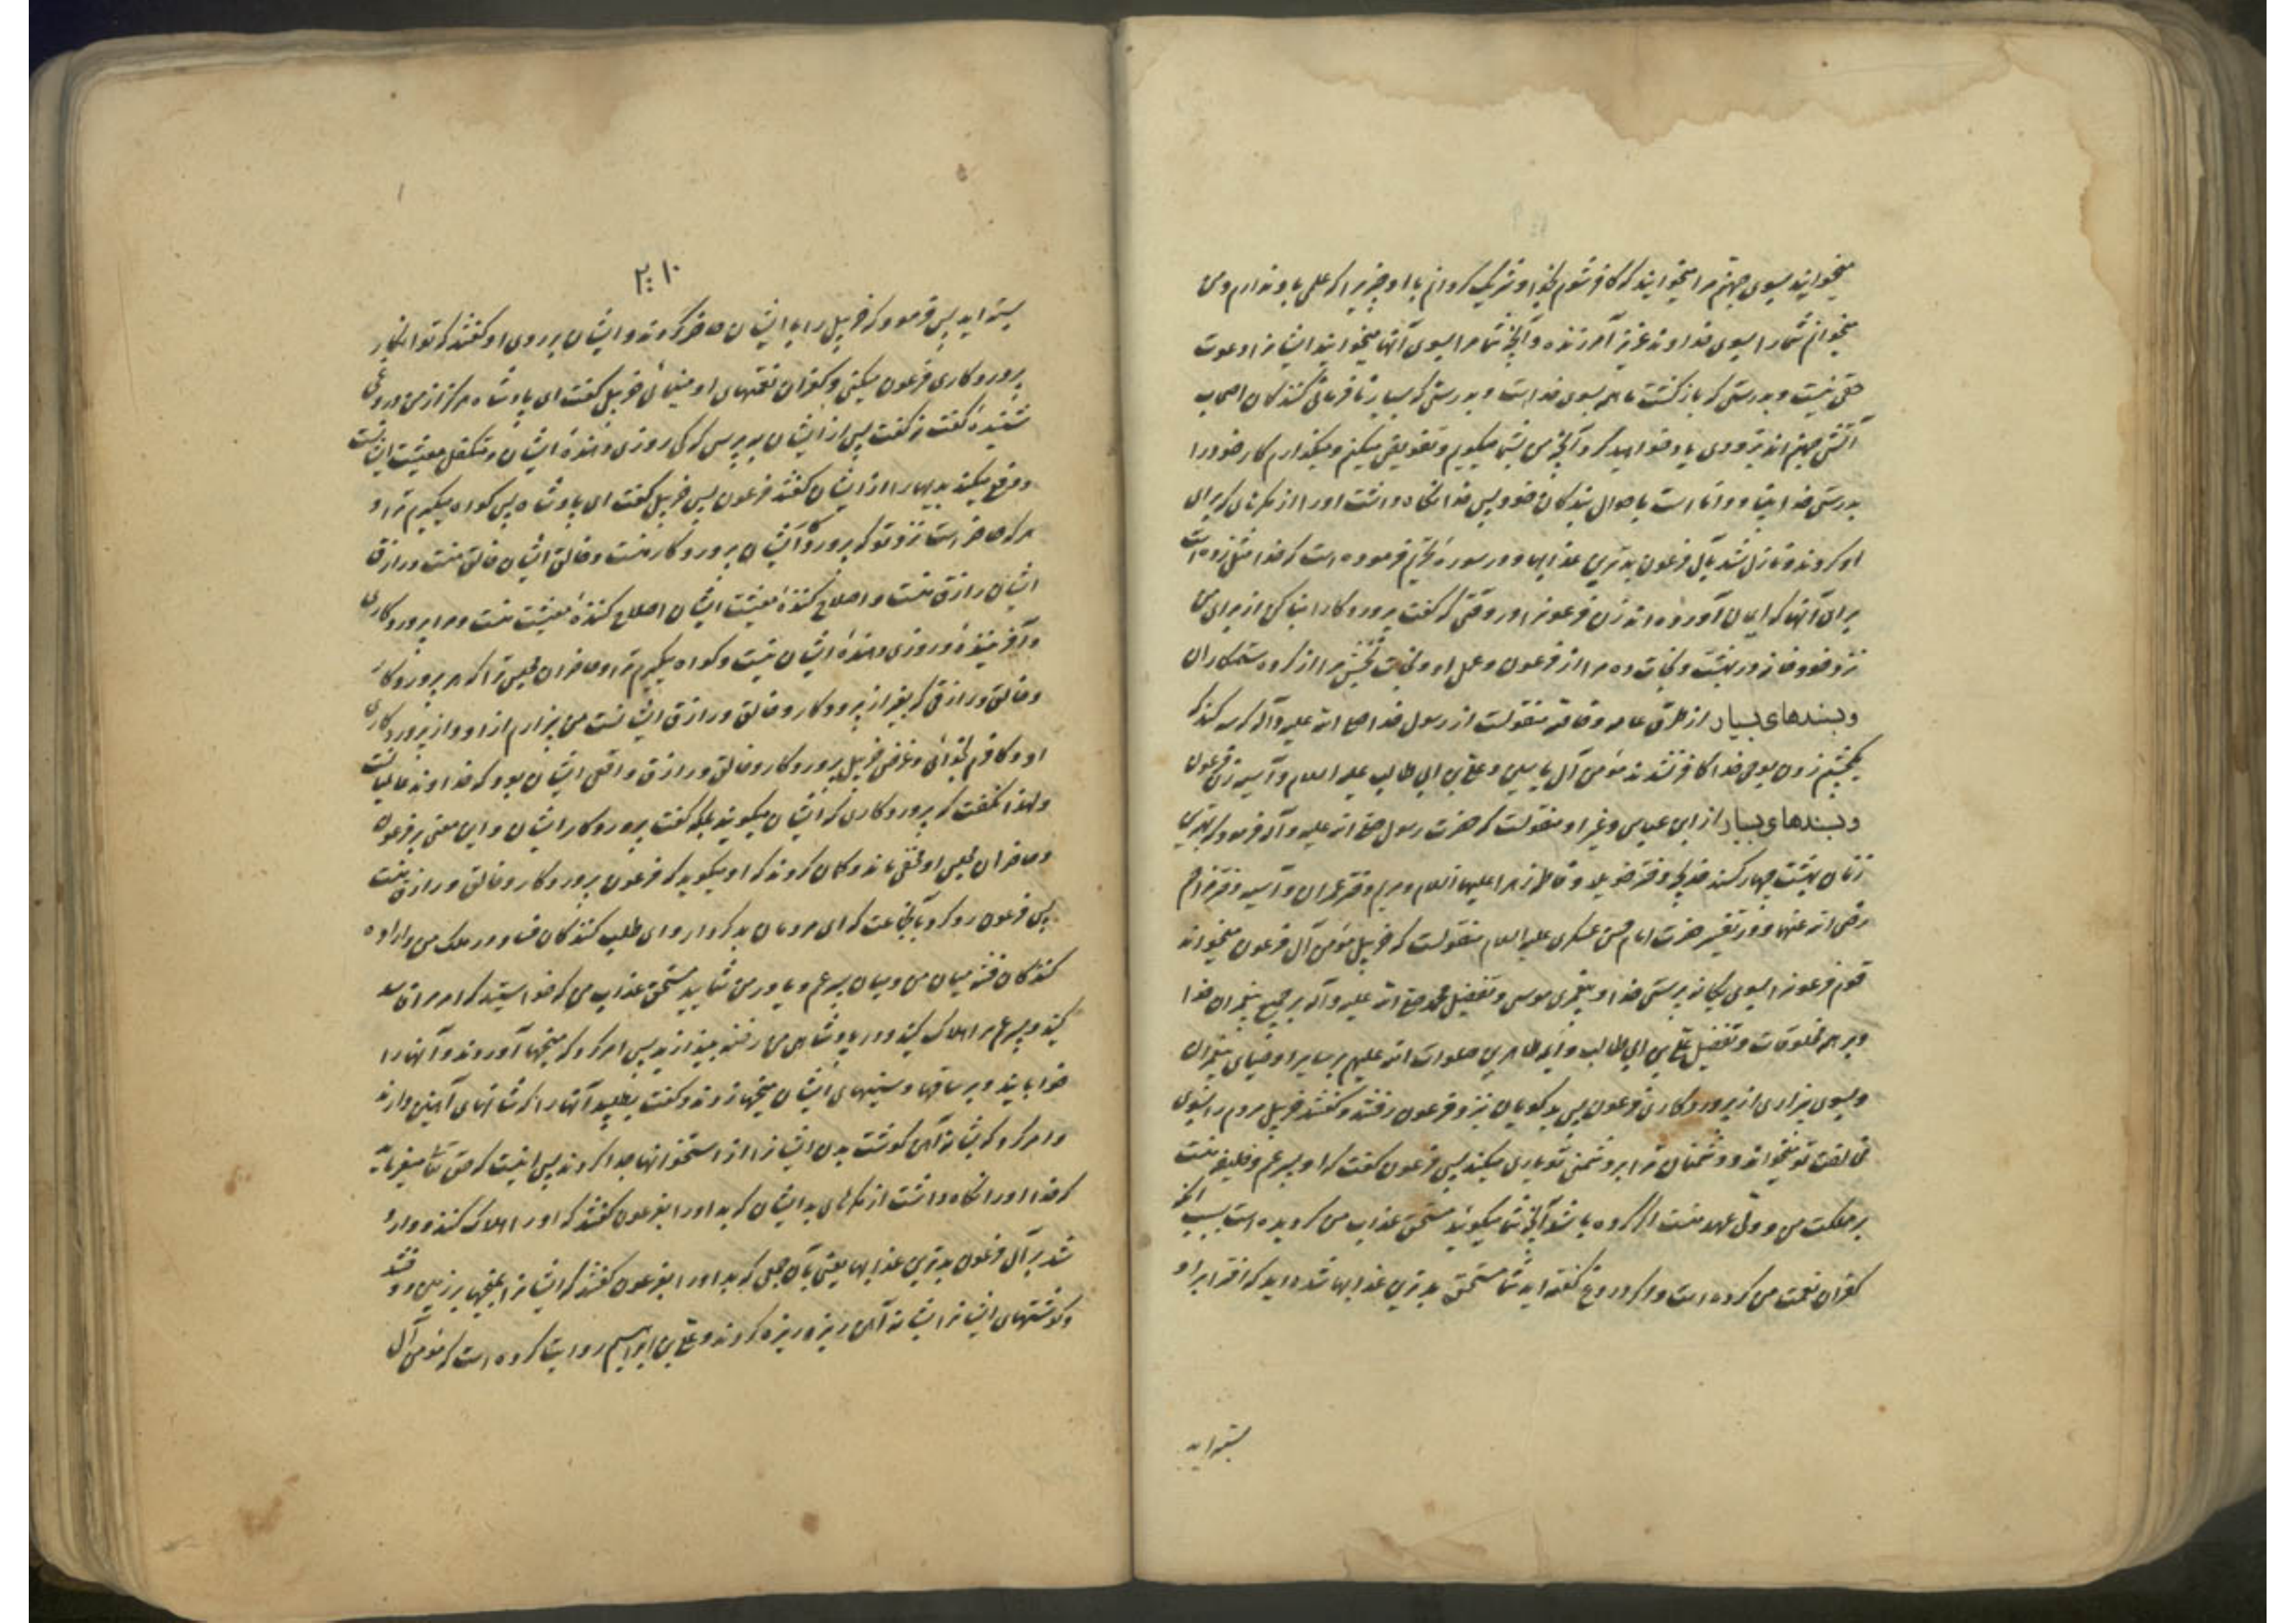 میخوانید بسوی جهنم مرا میخوانید که کافر شوم بخدا و شریک کردانم با او چیزیرا که علمی باو ندارم و من
میخوانم شما را بسوی خداوند عزیز آمرزنده و آنچه شما مرا بسوی آنها میخوانید ایشانرا دعوت
حقی نیست و بدرستی که بازکشت ما همه بسوی خداست و بدرستی که بسیار نافرمانی کنندکان اصحاب
آتش جهنم اند بزودی یاد خواهید کرد آنچه من بشما میکویم و تفویض میکنم و میکذارم کار خود را
بدرستی خدا بینا و داناست باحوال بندکان خود پس خدا نکاه داشت اورا از مکرهای که برای
او کردند و نازل شد بآل فرعون بدترین عذابها و در سوره تحریم فرموده است که خدا مثل زده است
برای آنها که ایمان آورده اند زن فرعونرا در وقتی که کفت پروردکارا بنا کن از برای من
نزد خود خانه در بهشت و نجات ده مرا از فرعون و عمل او و نجات بخش مرا از کروه ستمکاران
و بسندهای بسیار از طرق عامه و خاصه منقولست از رسول خدا صلی الله علیه وآله که سه کس
یکچشم زدن بوحی خدا کافر نشدند مؤمن آل یاسین و علی بن ابی طالب علیه السلام و آسیه زن فرعون
و بسندهای بسیار از ابن عباس و غیر او منقولست که حضرت رسول صلی الله علیه وآله فرمود که بهترین
زنان بهشت چهار کسند خدیجه دختر خویلد و فاطمه زهرا علیها السلام و مریم دختر عمران و آسیه دختر مزاحم
رضی الله عنها و در تفسیر حضرت امام حسن عسکری علیه السلام منقولست که خربیل مؤمن آل فرعون میخواند
قوم فرعونرا بسوی یکانه پرستی خدا و پیغمبری موسی و تفضیل محمد صلی الله علیه وآله بر جمیع پیغمبران خدا
و بر همه مخلوقات و تفضیل علی بن ابی طالب و ائمه طاهرین صلوات الله علیهم بر سایر اوصیای پیغمبران
و بسوی بیزاری از پروردکاری فرعون پس بدکویان نزد فرعون رفتند و کفتند خربیل مردم را بسوی
مخالفت تو میخواند و دشمنان ترا بر دشمنی تو یاری میکند پس فرعون کفت که او پسر عم و خلیفه منست
بر مملکت من و ولی عهد منست اکر کرده باشد آنچه شما میکوئید مستحق عذاب من کردیده است بسبب آنکه
کفران نعمت من کرده است و اکر دروغ کفته اید شما مستحق بدترین عذابها شده اید که افترا بر او
بسته اید
۲۱۰
بسته اید پس فرمود که خربیل را با ایشان حاضر کردند و ایشان بر روی او کفتند که تو انکار
پروردکاری فرعون میکنی و کفران نعمتهای او مینمائی خربیل کفت ای پادشاه هرکز از من دروغی
شنیدهٔ کفت نه کفت پس از ایشان بپرس که کی روزی دهندهٔ ایشان و متکفل معیشت ایشانست
و دفع میکند بدیها را از ایشان کفتند فرعون پس خربیل کفت ای پادشاه پس کواه میکیرم ترا و
هر که حاضر است نزد تو که پروردکار ایشان پروردکار منست و خالق ایشان خالق منست و رازق
ایشان رازق منست و اصلاح کنندهٔ معیشت ایشان اصلاح کنندهٔ معیشت منست و مرا پروردکاری
و آفرینندهٔ و روزی دهندهٔ ایشان نیست و کواه میکیرم ترا و حاضران مجلس ترا که هر پروردکار
و خالق و رازقی که بغیر از پروردکار و خالق و رازق ایشانست من بیزارم از او و از پروردکاری
او و کافرم بخدائی و غرض خربیل پروردکار و خالق و رازق واقعی ایشان بود که خداوند عالمیانست
و لهذا نکفت که پروردکاری که ایشان میکویند بلکه کفت پروردکار ایشان و این معنی بر فرعون
و حاضران مجلس او مخفی ماند و کمان کردند که او میکوید که فرعون پروردکار و خالق و رازق منست
پس فرعون رو کرد بآنجماعت که ای مردمان بدکردار و ای طلب کنندکان فساد در ملک من و اراده
کنندکان فتنه میان من و میان پسر عم و یاور من شمائید مستحق عذاب من که خواستید که امر مرا فاسد
کنید و پسر عم مرا هلاک کنید و در پادشاهی من رخنه بیندازید پس امر کرد که میخها آوردند و آنها را
خوابانید و بر ساقها و سینهای ایشان میخها زدند و کفت بطلبید آنها را که شانهای آهنین دارند
و امر کرد که بشانه آهن کوشت بدن ایشانرا از استخوانها جدا کردند پس اینست که حق تعالی میفرماید
که خدا اورا نکاه داشت از مکرهای بد ایشان که بد اورا بفرعون کفتند که اورا هلاک کنند و وارد
شد بر آل فرعون بدترین عذابها یعنی بآن جمعی که بد اورا بفرعون کفتند که ایشانرا بمیخها بر زمین دوختند
و کوشتهای ایشانرا بشانه آهن ریزه ریزه کردند و علی بن ابراهیم روایت کرده است که مؤمن آل